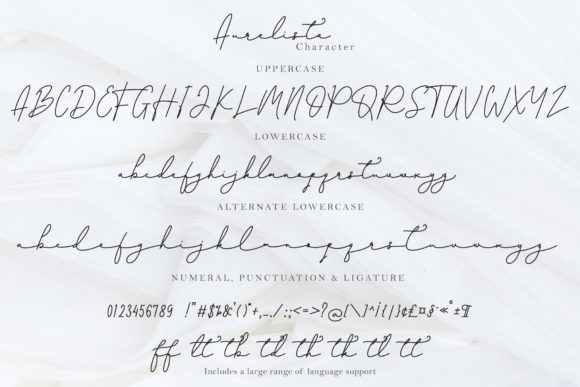 Aurelista
Character
UPPERCASE
ABCDEFGHIJKLMNOPQRSTUVWXYZ
LOWERCASE
abcdefghijklmnopqrstuvwxyz
ALTERNATE LOWERCASE
abcdefghijklmnopqrstuvwxyz
NUMERAL, PUNCTUATION & LIGATURE
0123456789 !"#$%&'()*+,-./:;<=>?@[\]^¡{/|}¢£¤§¨«°±¶
ff lt tb td th tk tl tt
Includes a large range of language support